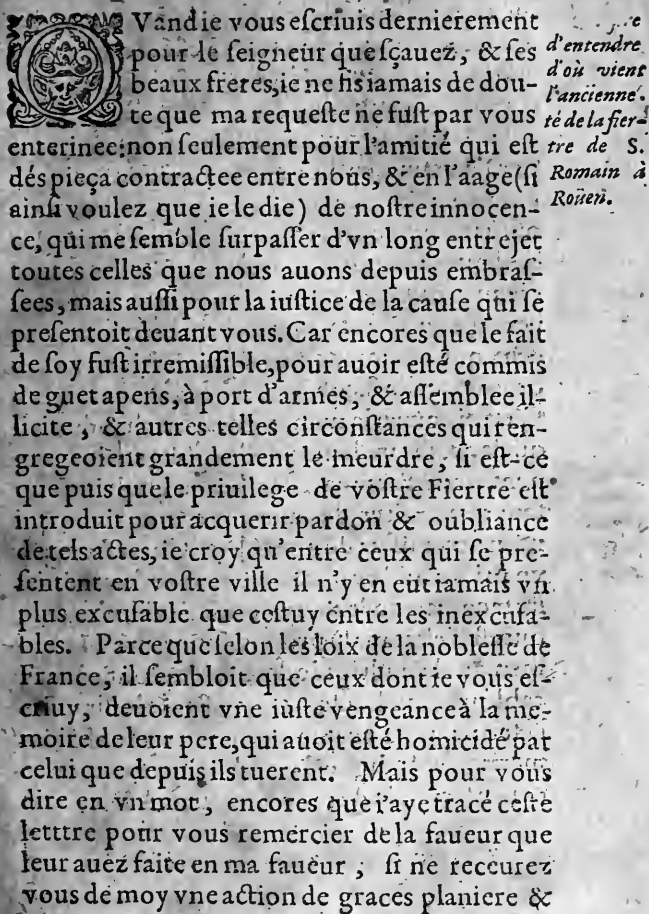 QVand ie vous eſcriuis dernierement
pour le ſeigneur que ſçauez, & ſes
beaux freres, ie ne fis iamais de dou-
te que ma requeſte ne fuſt par vous
enterinee: non ſeulement pour l'amitié qui eſt
dés pieça contractee entre nous, & en l'aage (ſi
ainſi voulez que ie le die) de noſtre innocen-
ce, qui me ſemble ſurpaſſer d'vn long entrejet
toutes celles que nous auons depuis embraſ-
ſees, mais auſſi pour la iuſtice de la cauſe qui ſe
preſentoit deuant vous. Car encores que le fait
de ſoy fuſt irremiſſible, pour auoir eſté commis
de guet apens, à port d'armes, & aſſemblee il-
licite, & autres telles circonſtances qui ren-
gregeoient grandement le meurdre, ſi eſt-ce
que puis que le priuilege de voſtre Fiertre eſt
introduit pour acquerir pardon & oubliance
de tels actes, ie croy qu'entre ceux qui ſe pre-
ſentent en voſtre ville il n'y en eut iamais vn
plus excuſable que ceſtuy entre les inexcuſa-
bles. Parce que ſelon les loix de la nobleſſe de
France, il ſembloit que ceux dont ie vous eſ-
criuy, deuoient vne iuſte vengeance à la me-
moire de leur pere, qui auoit eſté homicidé par
celui que depuis ils tuerent. Mais pour vous
dire en vn mot, encores que i'aye tracé ceſte
letttre pour vous remercier de la faueur que
leur auez faite en ma faueur; ſi ne receurez
vous de moy vne action de graces planiere &
d'entendre
d'où vient
l'ancienne-
té de la fier-
tre de S.
Romain à
Roüen.